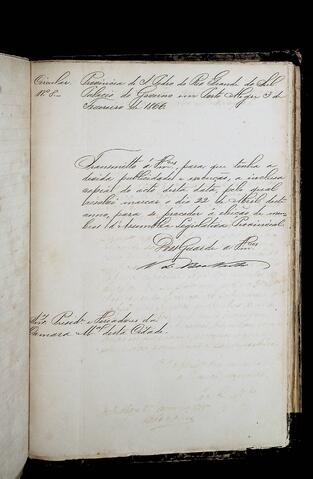 Circular Provincia de S. Pedro do Rio Grande do Sul
Nº 8 Palacio do Governo em Porto Alegre 3 de
Fevereiro de 1866.
Transmitto á Vmces para que tenha a
devida publicidade e execução, a inclusa
copia do acto desta data, pelo qual
resolvi marcar o dia 22 de Abril deste
anno, para se proceder á eleição de mem-
bros d'Assemblea Legislativa Provincial.
Deos Guarde a Vmces
Snrs Presidte e Vereadores da
Camara Mal desta Cidade.